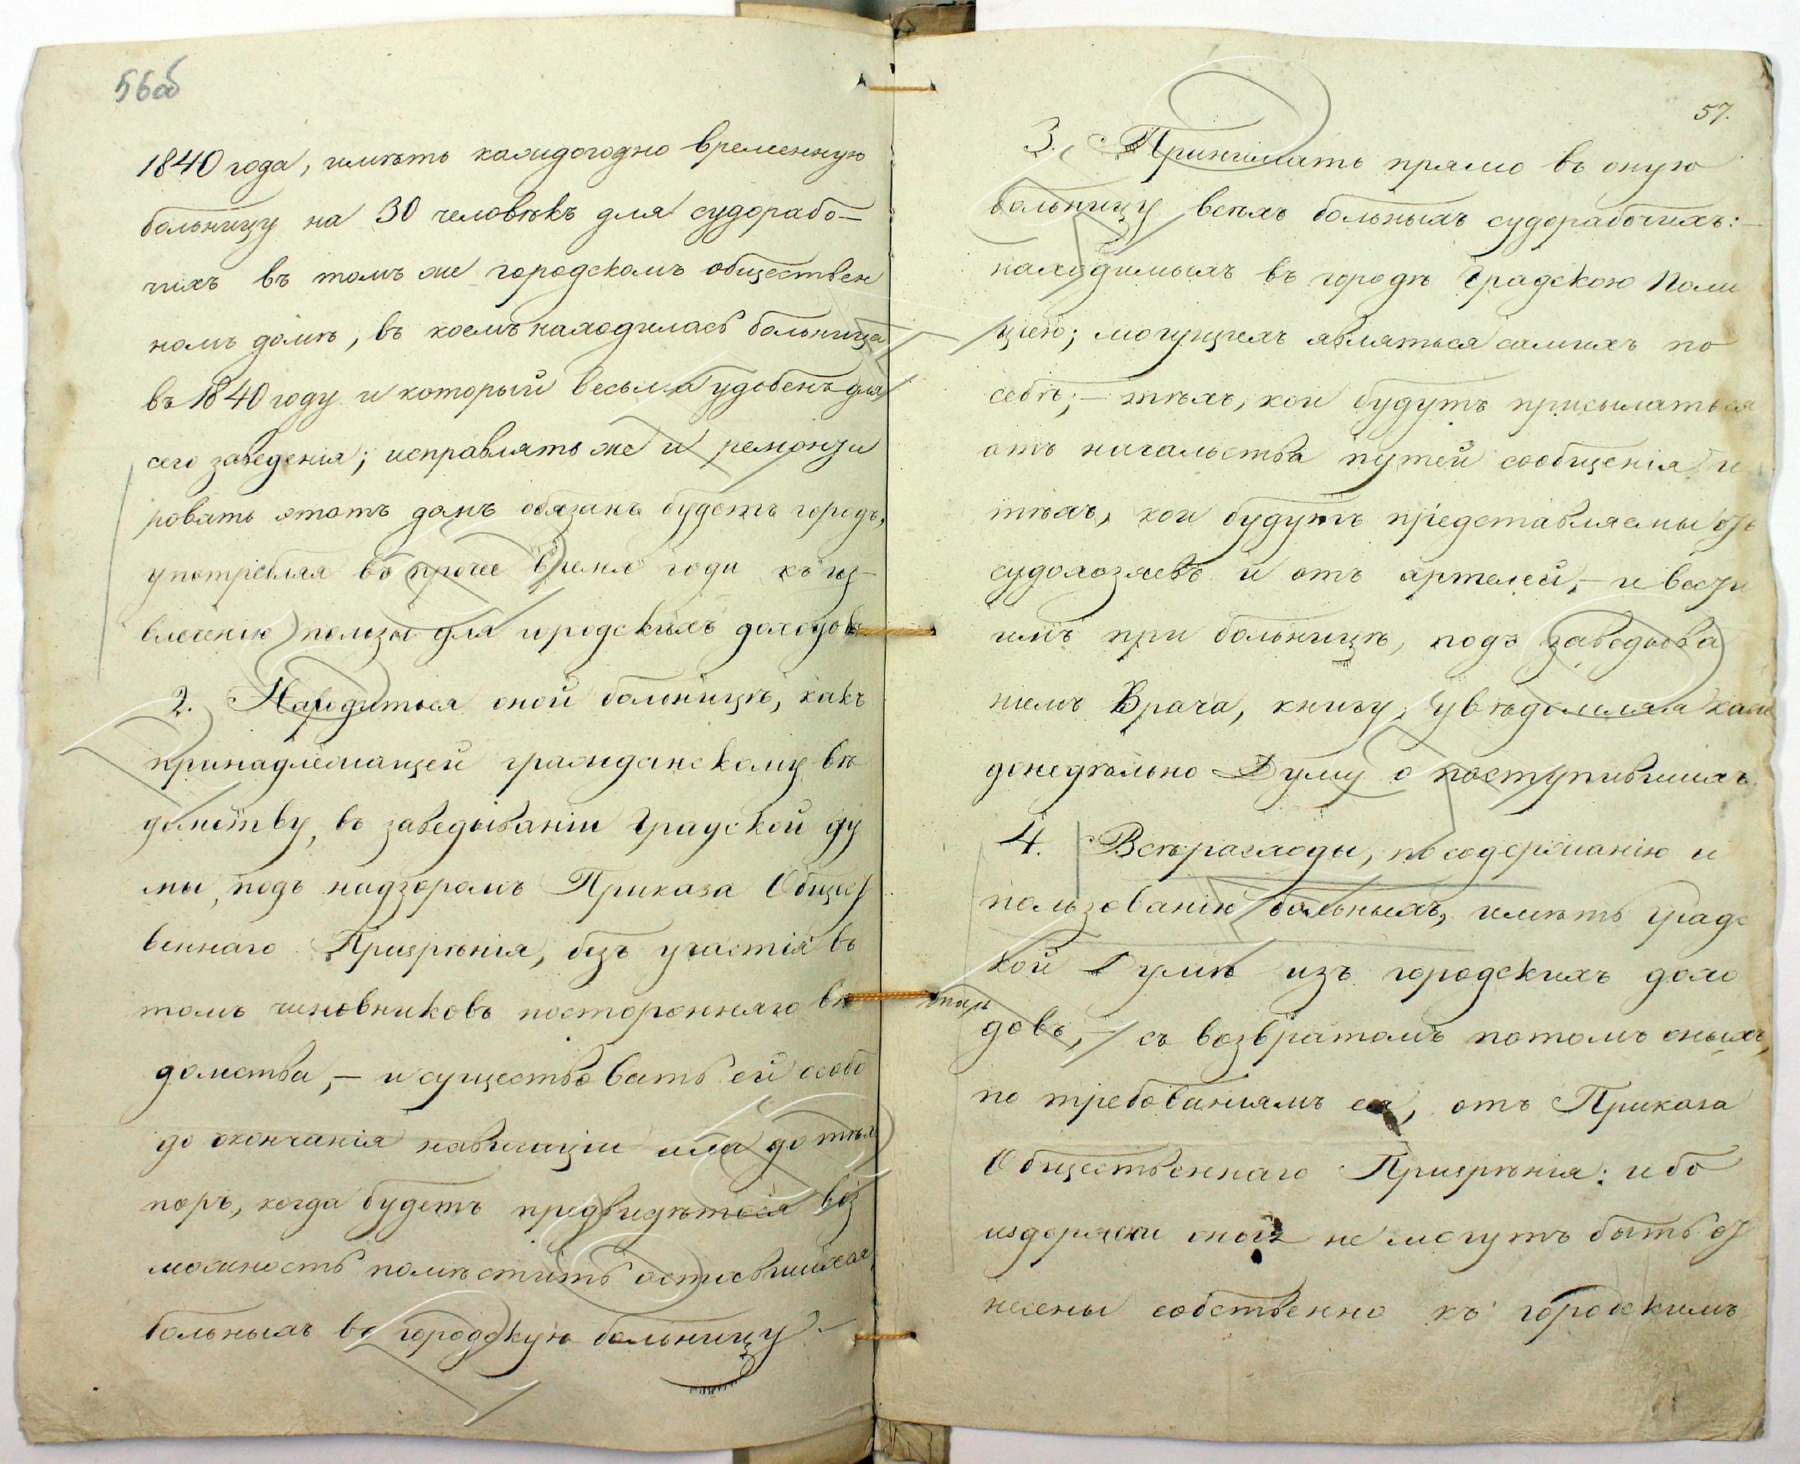 56об
1840 года, имѣть каждогодно временную
больницу на 30 человѣкъ для судорабо-
чихъ въ томъ же городскомъ обществен
номъ домѣ, въ коемъ находилась больница
въ 1840 году и который весьма удобенъ для
сего заведенія; исправлять же и ремонти
ровать этотъ домъ обязанъ будетъ городъ,
употребляя въ прочее время года къ из-
влеченію пользы для городскихъ доходовъ
2. Находиться оной больницѣ, какъ
принадлежащей гражданскому вѣ
домству, въ завѣдываніи Градской ду
мы, подъ надзоромъ Приказа Общест
веннаго Призрѣнія, безъ участія въ
томъ чиновниковъ посторонняго вѣ
домства, – и существовать ей особо
до окончанія навигаціи или до тѣхъ
поръ, когда будетъ предвидѣться воз
можность помѣстить оставшихся
больныхъ въ городскую больницу. –
57.
3. Принимать прямо въ оную
больницу всѣхъ больныхъ судорабочихъ: –
находимыхъ въ городѣ Градскою Поли
ціею; могущихъ являться самихъ по
себѣ; – тѣхъ, кои будутъ присылаться
отъ начальства путей сообщенія и
тѣхъ, кои будутъ представляемы отъ
судохозяевъ и отъ артелей, – и вести
имъ при больницѣ, подъ завѣдыва
ніемъ Врача, книгу, увѣдомляя каж
донедѣльно Думу о поступившихъ.
4. Всѣ расходы, по содержанію и
пользованію больныхъ, имѣть Градс
кой Думѣ изъ городскихъ дохо
довъ, – съ возвратомъ потомъ оныхъ,
по требованіямъ ея, отъ Приказа
Общественнаго Призрѣнія: ибо
издержки оной не могутъ быть от
несены собственно къ городскимъ